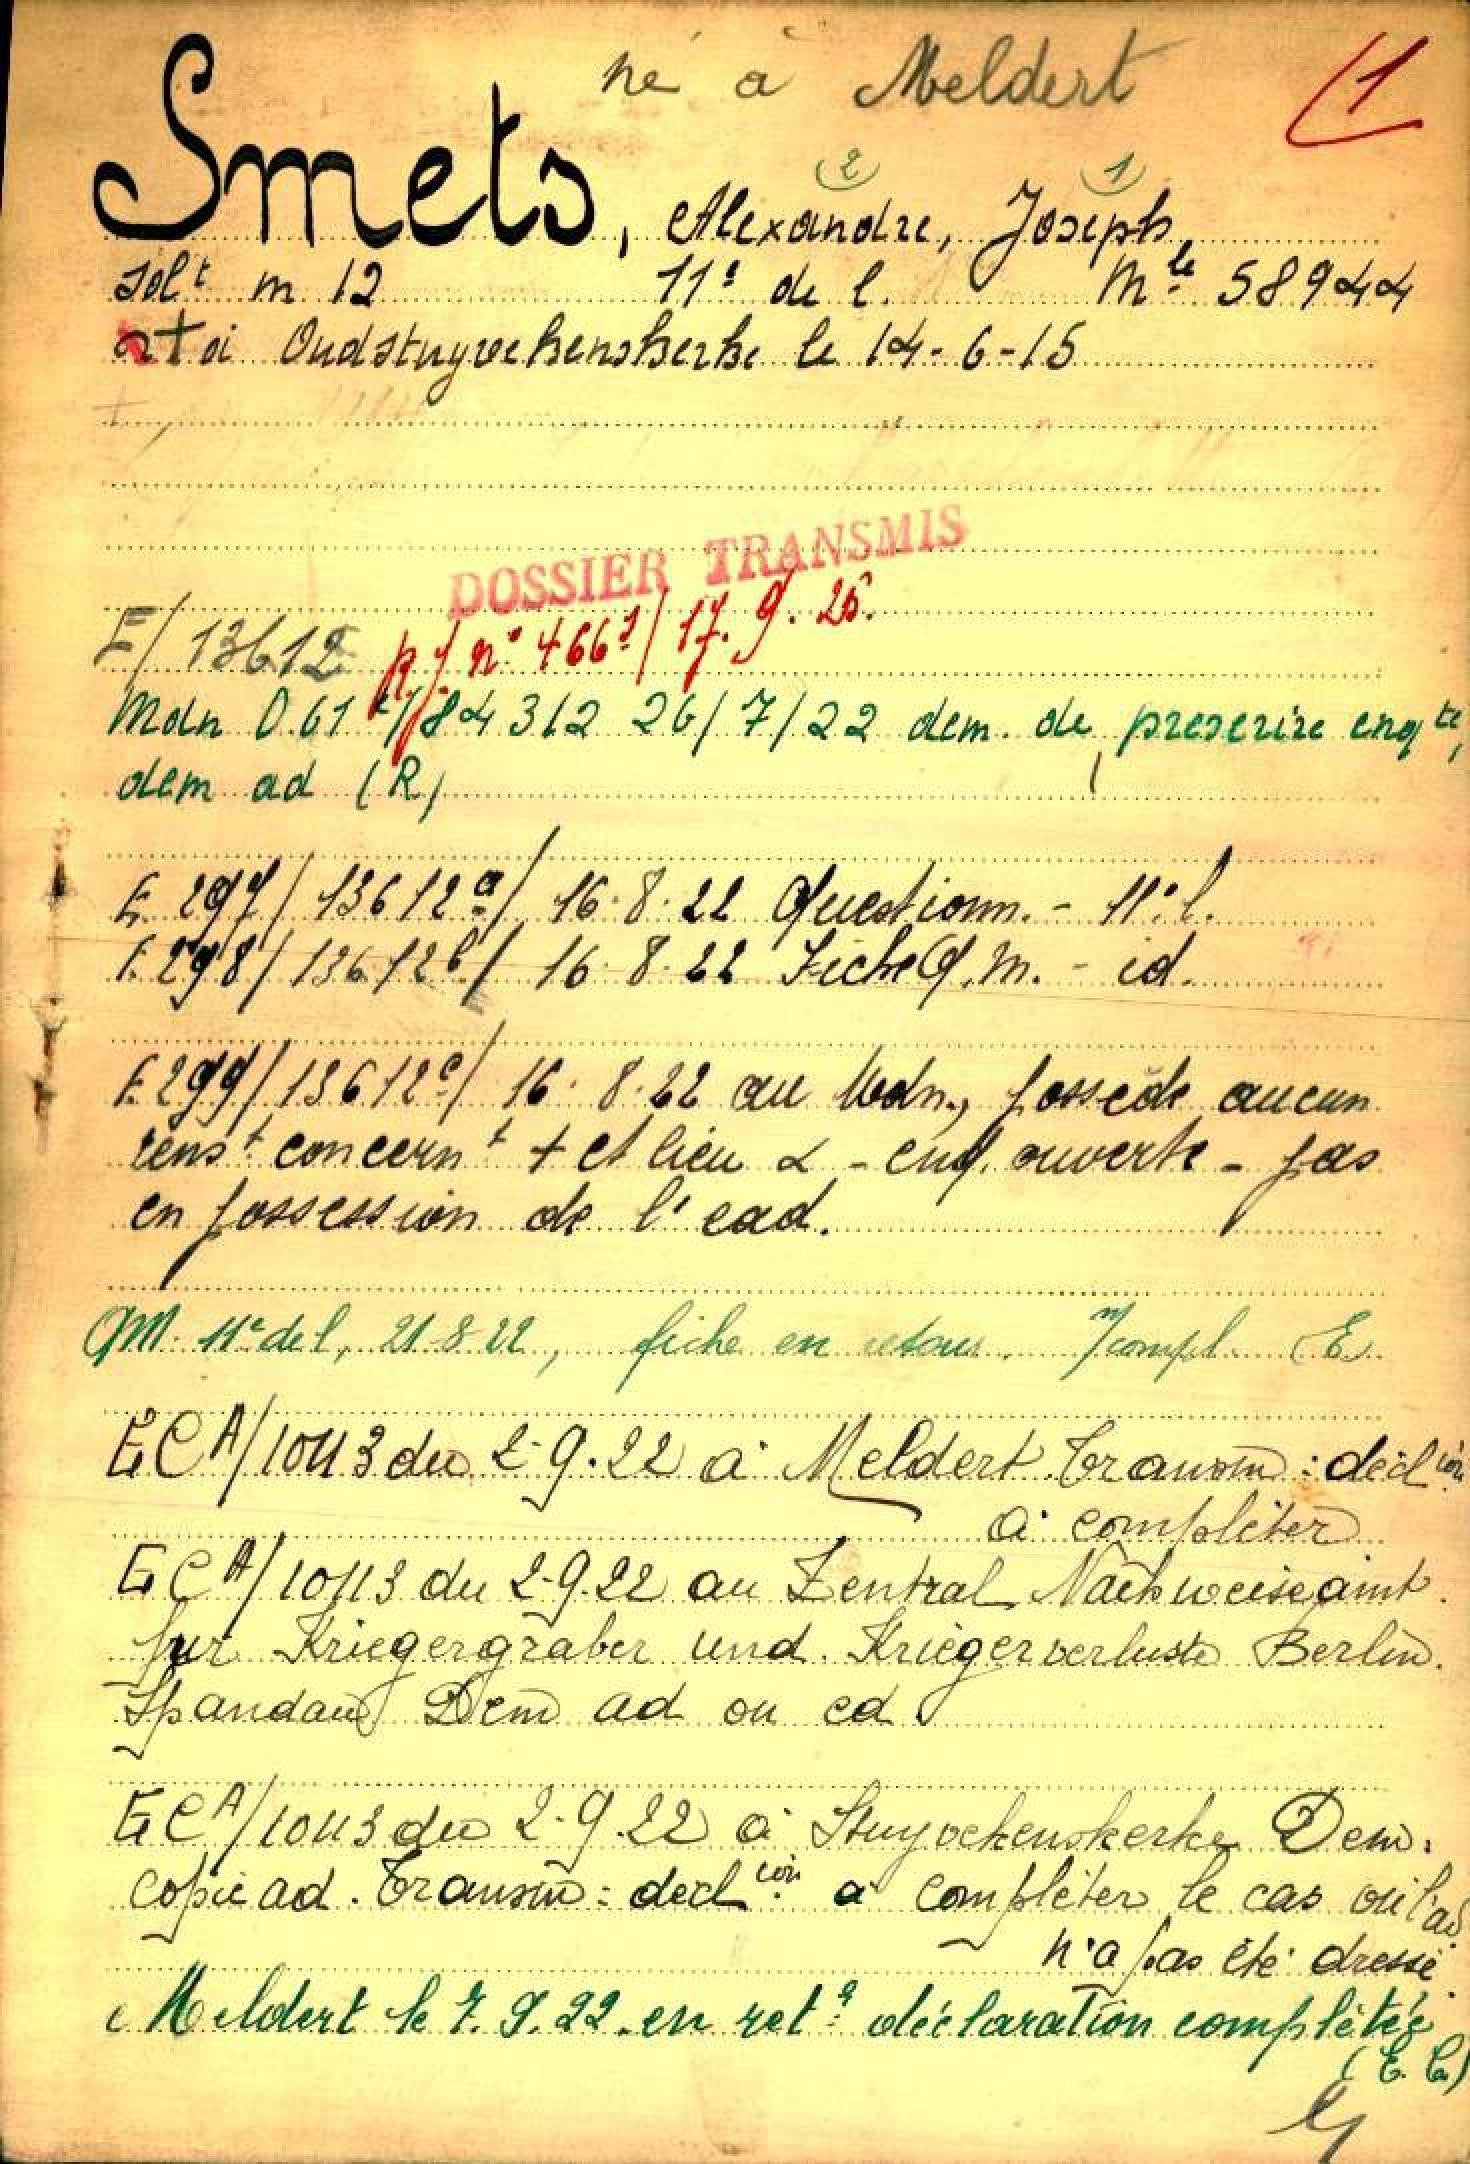 né à Meldert
1
2 1
Smets, Alexandre, Joseph,
solt m 12 11e de l. Mle 58944
+ à Oudstuyvekenskerke le 14-6-15
DOSSIER TRANSMIS
E/ 13612 p.j n° 466 / 17.9.25.
Mdn D.61 /84312 26/7/22 dem. de prescrire enqte,
dem ad (R)
E.297/13612a/ 16.8.22 Questionn. - 11e l.
E.298/13612b/ 16.8.22 Fiche Q.M. - id.
E.299/13612c/ 16.8.22 au Mdn, possède aucun
renst concernt + et lieu - enq. ouverte - pas
en possession de l'ead.
QM. 11e de l, 21-8-22, fiche en retour. n/compl. (E
ECA/10113 du 2-9.22 à Meldert Transm: déclion
à compléter
ECA/10113 du 2-9.22 au Zentral Nachweiseamt
fur Kriegergraber und Kriegerverluste Berlin.
Spandau Dem ad ou ed
ECA/10113 du 2-9.22 à Stuyvekenskerke Dem:
copie ad. Transm: déclion à compléter le cas où l'ad
n'a pas été dressé
Meldert le 7.9.22. en ret: déclaration complétée
(E.C.)